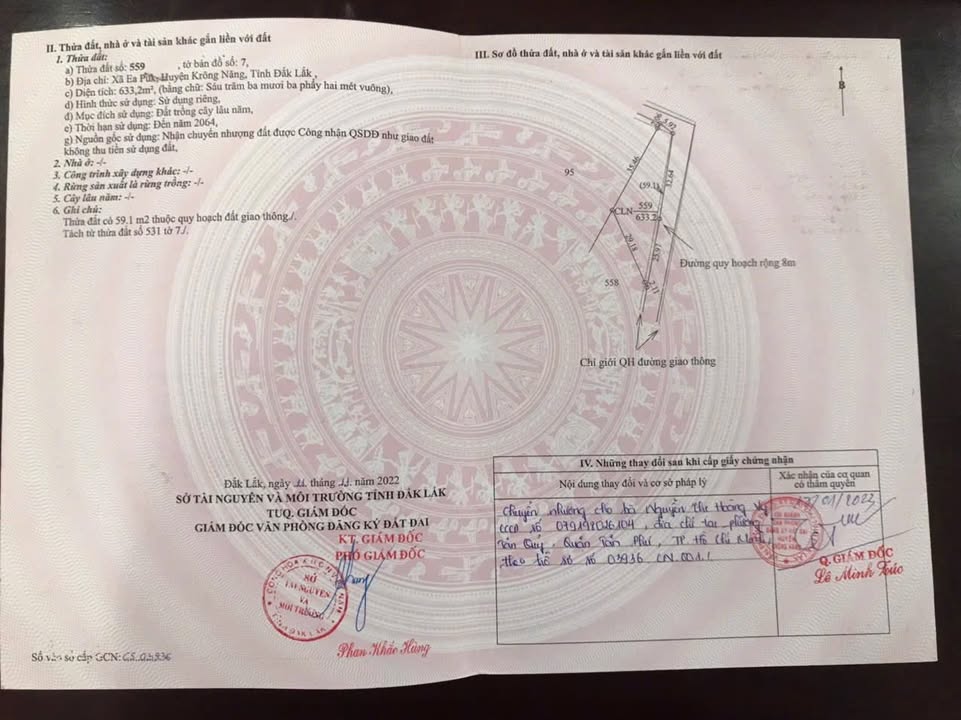 II. Thửa đất, nhà ở và tài sản khác gắn liền với đất
1. Thửa đất:
a) Thửa đất số: 559 , tờ bản đồ số: 7,
b) Địa chỉ: Xã Ea Púk, Huyện Krông Năng, Tỉnh Đắk Lắk ,
c) Diện tích: 633,2m², (bằng chữ: Sáu trăm ba mươi ba phẩy hai mét vuông),
d) Hình thức sử dụng: Sử dụng riêng,
đ) Mục đích sử dụng: Đất trồng cây lâu năm,
e) Thời hạn sử dụng: Đến năm 2064,
g) Nguồn gốc sử dụng: Nhận chuyển nhượng đất được Công nhận QSDĐ như giao đất
không thu tiền sử dụng đất,
2. Nhà ở: -/-
3. Công trình xây dựng khác: -/-
4. Rừng sản xuất là rừng trồng: -/-
5. Cây lâu năm: -/-
6. Ghi chú:
Thửa đất có 59,1 m2 thuộc quy hoạch đất giao thông./.
Tách từ thửa đất số 531 tờ 7./.
Đắk Lắk, ngày 11 tháng 11 năm 2022
SỞ TÀI NGUYÊN VÀ MÔI TRƯỜNG TỈNH ĐẮK LẮK
TUQ. GIÁM ĐỐC
GIÁM ĐỐC VĂN PHÒNG ĐĂNG KÝ ĐẤT ĐAI
KT. GIÁM ĐỐC
PHÓ GIÁM ĐỐC
SỞ
TÀI NGUYÊN
VÀ
MÔI TRƯỜNG
TỈNH ĐẮK LẮK
Phan Khắc Hùng
Số vào sổ cấp GCN: CS 03936
III. Sơ đồ thửa đất, nhà ở và tài sản khác gắn liền với đất
B
5.92
35.46
95
33.64
(59.1)
CLN
559
633.2
29.18
25.97
558
7.11
Đường quy hoạch rộng 8m
Chỉ giới QH đường giao thông
IV. Những thay đổi sau khi cấp giấy chứng nhận
Nội dung thay đổi và cơ sở pháp lý
Xác nhận của cơ quan
có thẩm quyền
Chuyển nhượng cho bà Nguyễn Thị Hoàng Vy
CCCD số 079192026104, địa chỉ tại phường
Tân Quý, Quận Tân Phú, TP. Hồ Chí Minh,
theo hồ sơ số 03936 CN.001./.
17/01/2023
Q. GIÁM ĐỐC
Lê Minh Túc